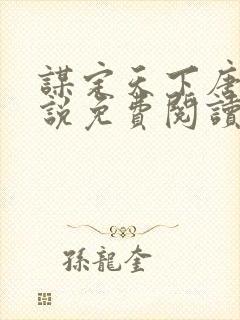 謀定天下唐
說免費閱讀
孫龍奎